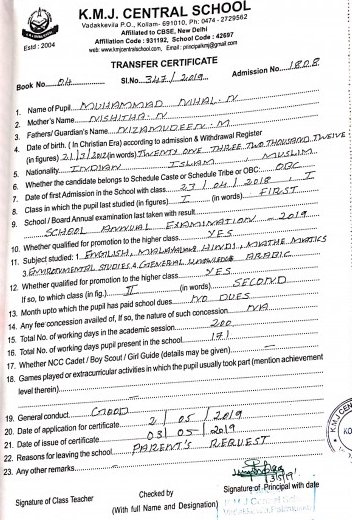 K.M.J. CENTRAL SCHOOL
Vadakkevila P.O., Kollam- 691010, Ph: 0474 - 2729562
Affiliated to CBSE, New Delhi
Affiliation Code : 931192, School Code : 42697
web: www.kmjcentralschool.com, Email : principalkmj@gmail.com
Estd : 2004
TRANSFER CERTIFICATE
Book No. 04 Sl.No. 347/2019 Admission No. 1808
1. Name of Pupil MUHAMMAD NIHAL. N
2. Mother's Name NISHITHA. N
3. Fathers/ Guardian's Name NIZAMUDEEN. M
4. Date of birth. ( In Christian Era) according to admission & Withdrawal Register
(in figures) 21/3/2012 (in words) TWENTY ONE THREE TWO THOUSAND TWELVE
5. Nationality. INDIAN ISLAM, MUSLIM
6. Whether the candidate belongs to Schedule Caste or Schedule Tribe or OBC: OBC
7. Date of first Admission in the School with class 23/04/2018 I
8. Class in which the pupil last studied (in figures) I (in words) FIRST
9. School / Board Annual examination last taken with result
SCHOOL ANNUAL EXAMINATION - 2019
10. Whether qualified for promotion to the higher class YES
11. Subject studied: 1 ENGLISH, MALAYALAM HINDI, MATHEMATICS
3. ENVIRONMENTAL STUDIES & GENERAL KNOWLEDGE ARABIC
12. Whether qualified for promotion to the higher class YES
If so, to which class (in fig.) II (in words) SECOND
13. Month upto which the pupil has paid school dues NO DUES
14. Any fee concession availed of, If so, the nature of such concession NA
15. Total No. of working days in the academic session 200
16. Total No. of working days pupil present in the school 171
17. Whether NCC Cadet / Boy Scout / Girl Guide (details may be given) —
18. Games played or extracurricular activities in which the pupil usually took part (mention achievement
level therein) —
19. General conduct GOOD
20. Date of application for certificate 2/05/2019
21. Date of issue of certificate 03/05/2019
22. Reasons for leaving the school PARENT'S REQUEST
23. Any other remarks —
3/5/19
Signature of Class Teacher Checked by Signature of Principal with date
(With full Name and Designation)
K.M.J